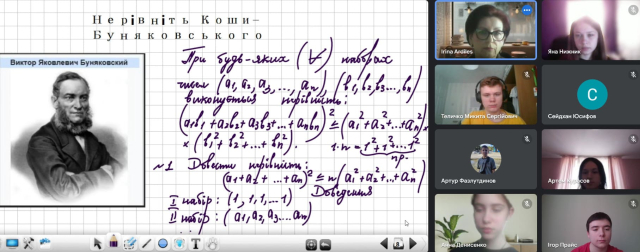 Нерівніть Коши–
Буняковського
Виктор Яковлевич Буняковский
При будь-яких (∀) наборах
чисел (a₁, a₂, a₃, ..., aₙ), (b₁, b₂, b₃..., bₙ)
виконується нерівність:
(a₁b₁ + a₂b₂ + a₃b₃ + ... + aₙbₙ)² ≤ (a₁² + a₂² + ... + aₙ²) ×
× (b₁² + b₂² + ... + bₙ²).
1·n = 1² + 1² + ... 1²
№1 Довести нерівність:
(a₁ + a₂ + ... + aₙ)² ≤ n(a₁² + a₂² + ... + aₙ²)
Доведення
I набір: (1, 1, 1, ... 1)
II набір: (a₁, a₂, a₃ ... aₙ)
Яна Нижник
Теличко Микита Сергійович
С
Сейдхан Юсифов
Артур Фазлутдинов
Анна Денисенко
Ігор Прайс